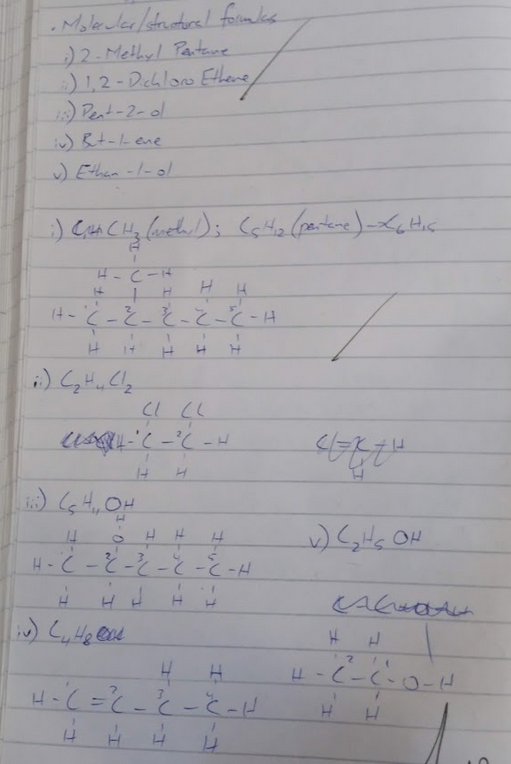 . Molecular/structural formulas
i) 2-Methyl Pentane
ii) 1,2-Dichloro Ethene
iii) Pent-2-ol
iv) But-1-ene
v) Ethan-1-ol
i) CH3 (methyl); C5H12 (pentane) - C6H15
H
H - C - H
H H H H
H - C - 2C - 3C - C - 5C - H
H H H H H
ii) C2H4Cl2
Cl Cl
H - C - 2C - H
H H
iii) C5H11OH
H
H O H H H
H - C - 2C - 3C - 4C - 5C - H
H H H H H
v) C2H5OH
H H
H - 2C - 1C - O - H
H H
iv) C4H8
H H
H - C = 2C - 3C - 4C - H
H H H H